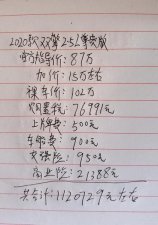 2020款双擎2.5L尊贵版
官方指导价：87万
加价：15万左右
裸车价：102万
购置税：76991元
上牌费：500元
车船费：900元
交强险：950元
商业险：21388元
共合计：1120729元左右